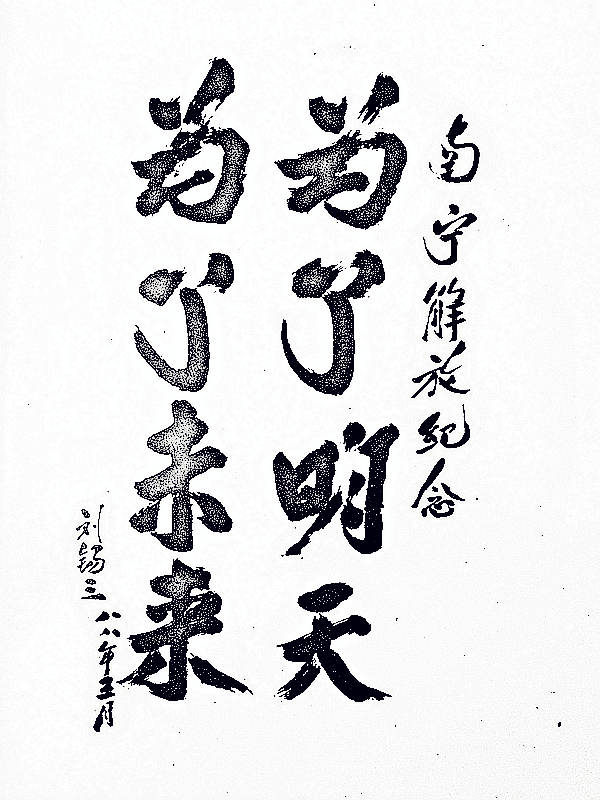 南宁解放纪念
为了明天
为了未来
刘锡三
八八年五月